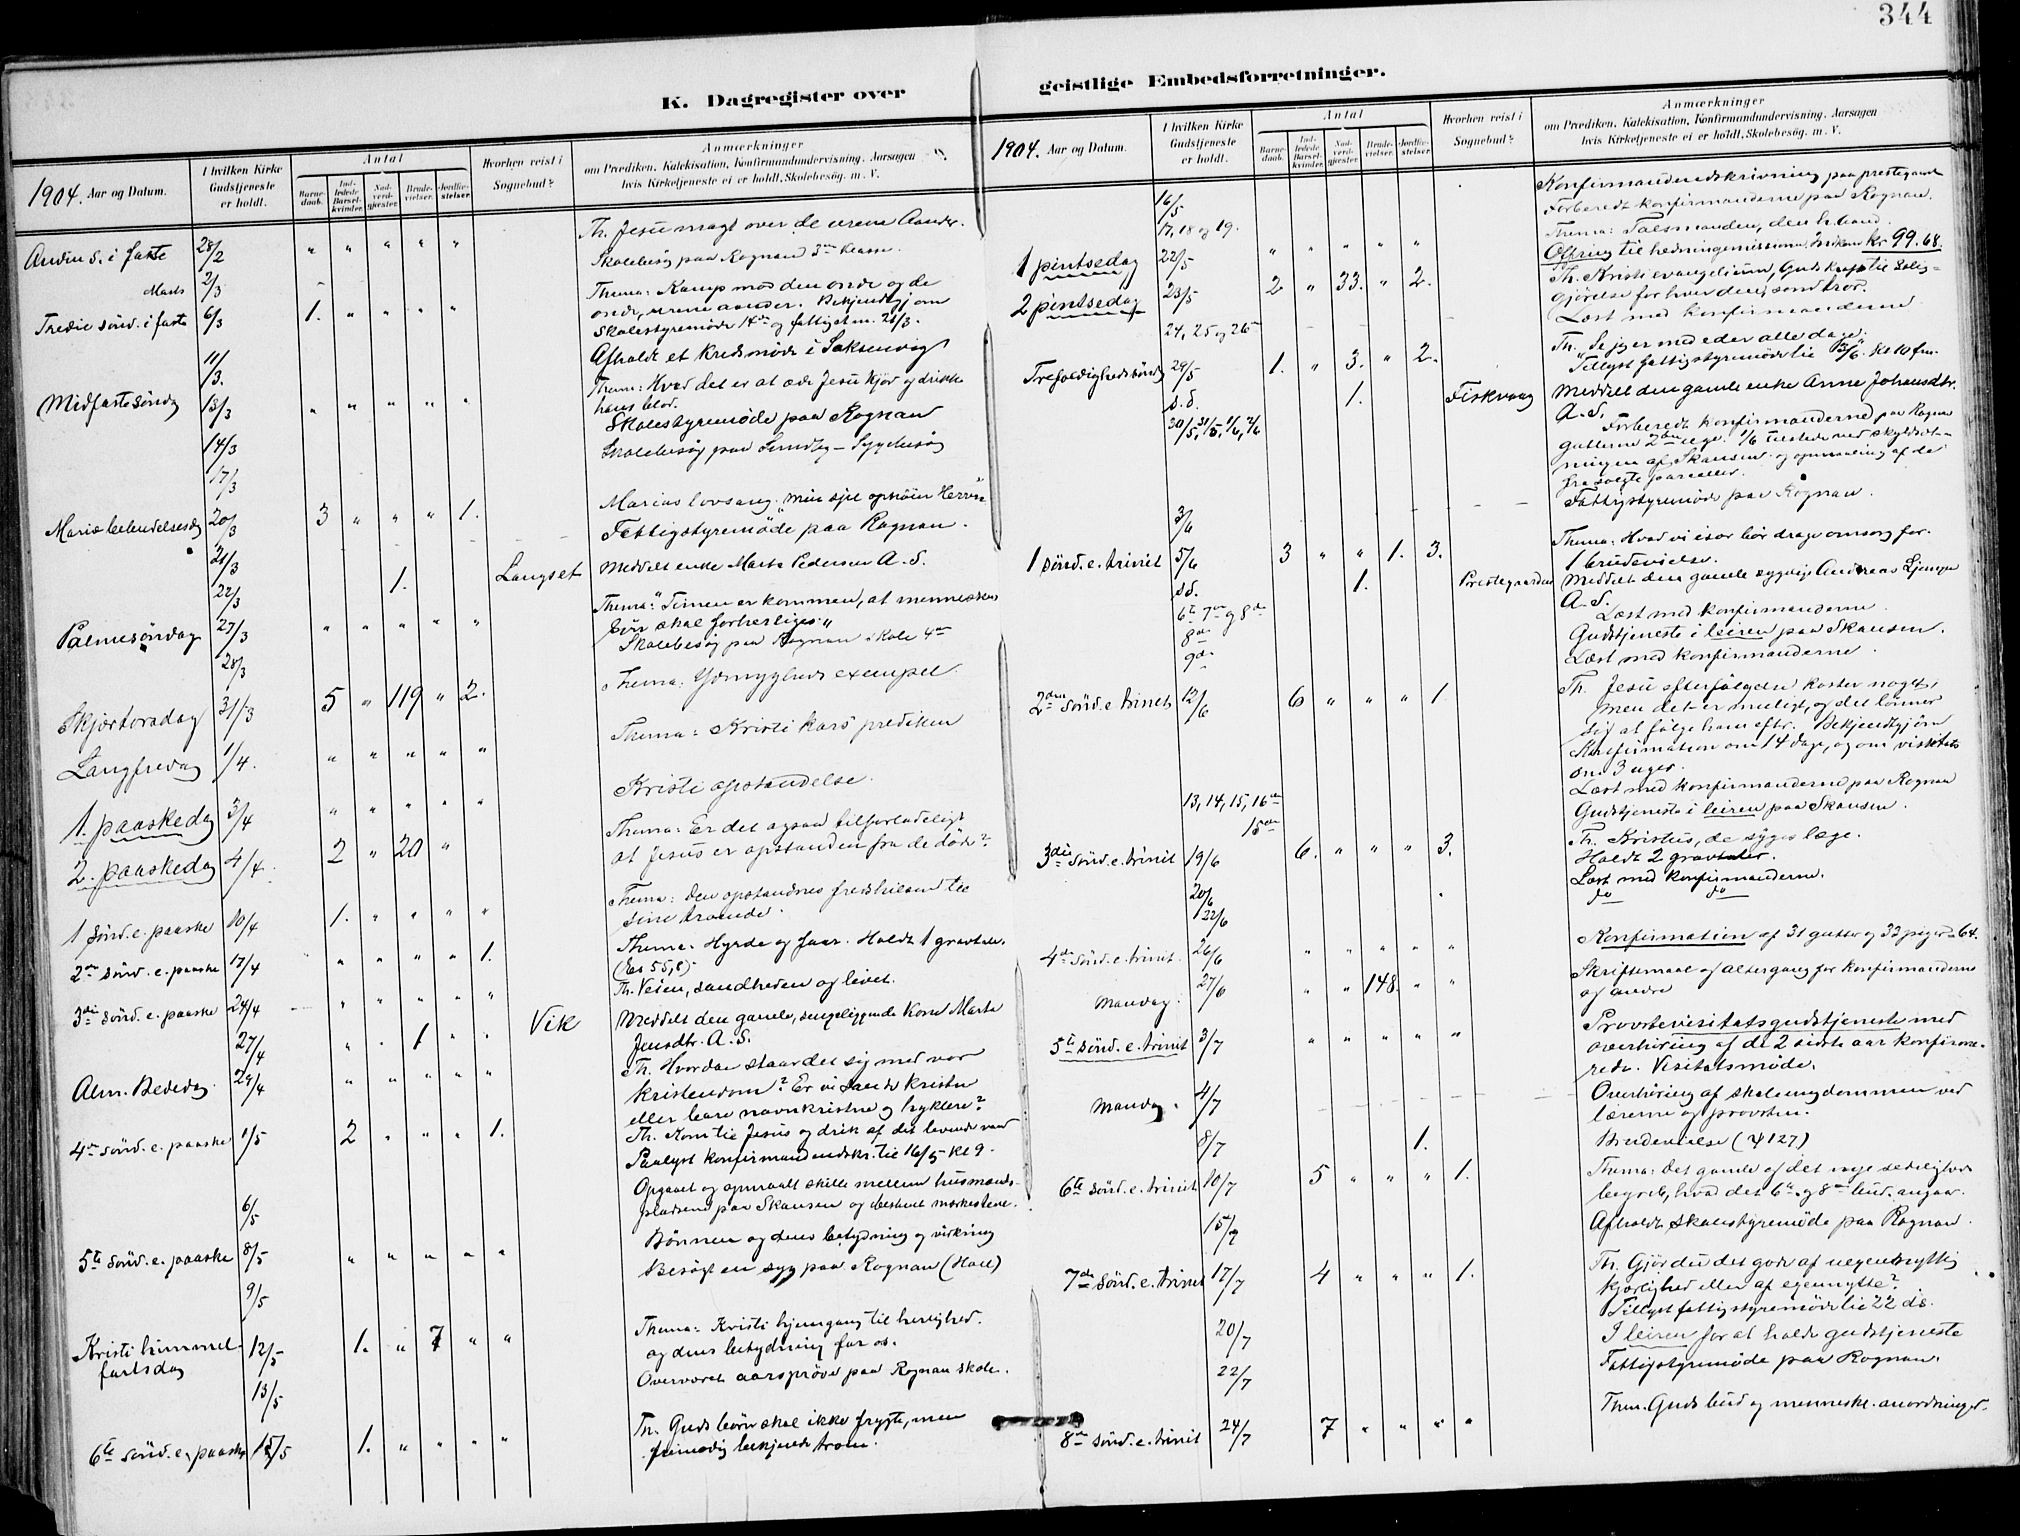 344
K. Dagregister over
geistlige Embedsforretninger.
1904. Aar og Datum.
I hvilken Kirke Gudstjeneste er holdt.
Antal
Barnedaab.
Indledede Barselkvinder.
Nadverdgjester.
Brudevielser.
Jordfæstelser.
Hvorhen reist i Sognebud?
Anmærkninger
om Prædiken, Katekisation, Konfirmandundervisning, Aarsagen
hvis Kirketjeneste ei er holdt, Skolebesøg. m. V.
Anden S. i faste 28/2 " " " " "
Th. Jesu magt over de urene Aander.
Skolebesøg paa Rognan 3die klasse
Marts 2/3
Tredie sønd. i faste 6/3 1. " " " "
Thema: Kamp mod den onde og de
onde, urene aander. Bekjendtgj. om
Skolestyremøde 14de og fattigst.m. 21/3.
11/3. Afholdt et kredsmøde i Saksenvig
Midfastesøndg 13/3 " " " " "
Thema: Hvad det er at æde Jesu kjød og drikke
hans blod.
14/3 Skolestyremøde paa Rognan
17/3 Skolebesøg paa Sundby - Sygebesøg
Mariæ bebudelsesdg 20/3 3 " " " 1.
Marias lovsang: "Min sjel ophøier Herren"
21/3 Fattigstyremøde paa Rognan.
22/3 1. Langset Meddelt enke Marta Pedersen A. S.
Palmesøndag 27/3 " " " " "
Thema: "Timen er kommen, at menneskens
søn skal forherliges"
28/3 Skolebesøg paa Rognan skole 4de
Skjærtorsdag 31/3 5 " 119 " 2.
Thema: Ydmyghed exempel
Langfredag 1/4. " " " " "
Thema: Kristi kors prediken
1. paaskedg 3/4 " " " " "
Kristi opstandelse.
2. paaskedag 4/4. 2 " 20 "
Thema: Er det ogsaa tilforladeligt
at Jesus er opstanden fra de døde?
1 sønd. e. paaske 10/4 1. " " " "
Thema: Den opstandnes fredshilsen til
sine troende.
2den sønd. e. paaske 17/4 " " " " 1.
Thema: Hyrde og faar. Holdt 1 gravtale.
(Es 55,8).
3die sønd. e. paaske 24/4 " " " " "
Th. Veien, sandheden og livet.
27/4 " " 1 " " Vik Meddelt den gamle, sengeliggende kone Marte
Jensdtr. A. S.
Alm. Bededag 29/4 " " " " "
Th. Hvordan staar det sig med vor
kristendom? Er vi sande kristne
eller bare navnkristne og hyklere?
4de sønd. e. paaske 1/5 2 " " " 1.
Th. Kom til Jesus og drik af det levende vand
Paalyst konfirmandindskr. til 16/5 kl 9.
6/5 Opgaaet og opmaalt skille mellem husmands-
pladsene paa Skansen og bestemt merkestene.
5te sønd. e. paaske 8/5 " " " " "
Bønnen og dens betydning og virkning
9/5 Besøgt en syg paa Rognan (Hall)
Kristi himmel-
fartsdag 12/5 1. " 7 " "
Thema: Kristi hjemgang til herlighed.
og dens betydning for os.
13/5 Overværet aarsprøve paa Rognan skole.
6te sønd. e. paaske 15/5 1. " " " "
Th. Guds børn skal ikke frygte, men
frimodig bekjende troen.
1904. Aar og Datum.
I hvilken Kirke Gudstjeneste er holdt.
Antal
Barnedaab.
Indledede Barselkvinder.
Nadverdgjester.
Brudevielser.
Jordfæstelser.
Hvorhen reist i Sognebud?
Anmærkninger
om Prædiken, Katekisation, Konfirmandundervisning, Aarsagen
hvis Kirketjeneste ei er holdt, Skolebesøg. m. V.
16/5 Konfirmandindskrivning paa prestegaard
17, 18 og 19. Forberedt konfirmanderne paa Rognan.
1 pintsedag 22/5 " " " " "
Thema: Talsmanden, den h. aand.
Ofring til hedningemissionen indkom kr 99.68.
2 pintsedag 23/5 2 " 33. " 2.
Th. Kristi evangelium, Guds kraft til salig-
gjørelse for hver den, som tror.
24, 25 og 26de Læst med konfirmanderne
Trefoldighedssøndg 29/5 1. " 3. " 2.
Th. Se jeg er med eder alle dage.
Tillyst fattigstyremøde til 3/6. kl 10 fm.
s. d. 1. Fiskvaag Meddelt den gamle enke Anne Johansdtr.
A. S.
30/5, 31/5, 1/6, 2/6 Forberedt konfirmanderne paa Rognan
gutterne 2den uge. 1/6 tilstede ved skyldsæt-
ningen af Skansen og opmaaling af de
fra solgte parceller.
3/6 Fattigstyremøde paa Rognan.
1 sønd. e. trinit 5/6 3 " " 1. 3.
Thema: Hvad vi især bør drage omsorg for.
1 brudevielse.
s.d. 1. Prestegaarden Meddelt den gamle sygelige Andreas
A. S.
6te 7de og 8de Læst med konfirmanderne.
8de Gudstjeneste i leiren paa Skansen.
9de Læst med konfirmanderne.
2den sønd. e. trinit. 12/6 6 " " " 1
Th. Jesu efterfølgelse koster noget,
men det er muligt, og det lønner
sig at følge ham efter. Bekjendtgjøre
Konfirmation om 14 dage, og om visitats
om 3 uger.
13, 14, 15, 16de Læst med konfirmanderne paa Rognan
15de Gudstjeneste i leiren paa Skansen.
3die sønd. e. trinit 19/6 6. " " " 3.
Th. Kristus, de syges læge.
Holdt 2 gravtaler.
20/6 Læst med konfirmanderne.
22/6 do do
4de sønd. e. trinit. 26/6 " " " " "
Konfirmation af 31 gutter og 33 piger = 64.
Mandag. 27/6 " " 148. " "
Skriftemaal og altergang for konfirmanderne
og andre
5te sønd. e. trinit 3/7 " " " " "
Provstevisitatsgudstjeneste med
overhøring af de 2 sidste aar konfirme-
rede. Visitatsmøde.
Mandg. 4/7 Overhøring af skoleungdommen ved
lærerne og provsten.
8/7 1. Brudevielse (ψ 127)
6te sønd. e. trinit 10/7 5 " " " 1.
Thema: Det gamle og det nye sædeligheds
begreb, hvad det 6te og 8de bud angaar.
15/7 Afholdt skolestyremøde paa Rognan.
7de sønd. e. trinit 17/7 4 " " " 1.
Th. Gjør du det gode af uegennyttig
kjærlighed eller af egennytte?
Tillyst fattigstyremøde til 22 ds.
20/7 I leiren for at holde gudstjeneste
22/7 Fattigstyremøde paa Rognan.
8de sønd. e. trinit 24/7 7 " " " "
Them. Guds bud og menneske-anordninger.